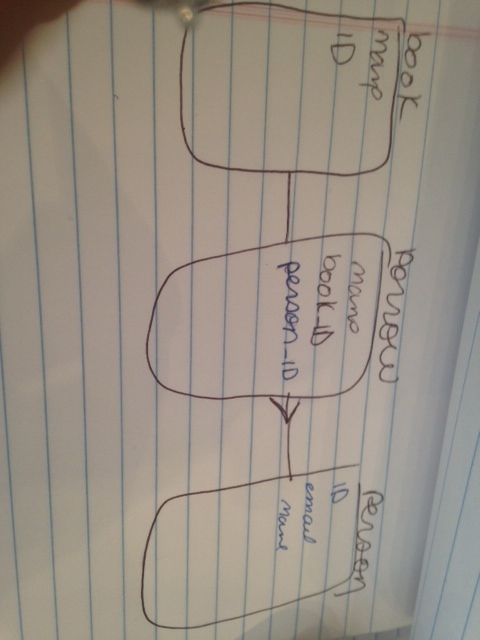 book
ID
borrow
book_ID
person_ID
person
ID
email
name